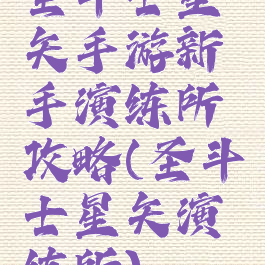 圣斗士星
矢手游新
手演练所
攻略(圣斗
士星矢演
练所)